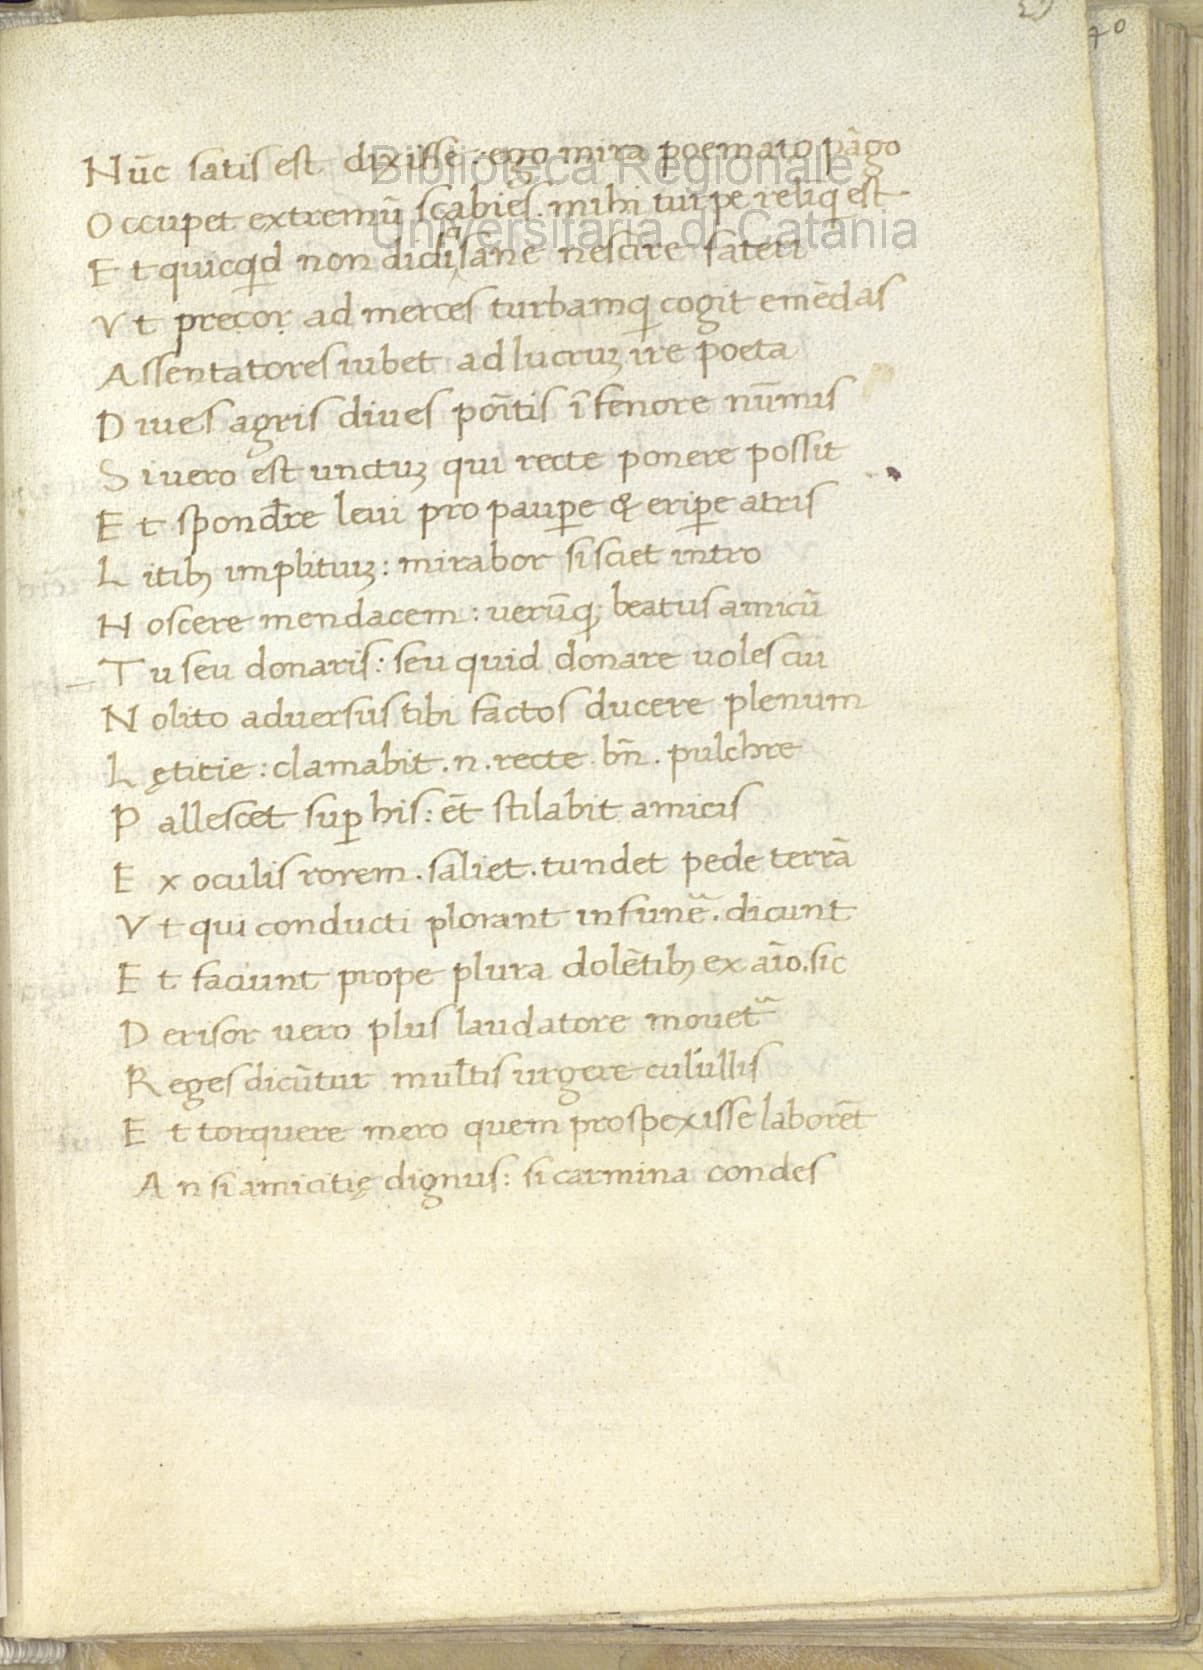 40
Nūc satis est dixisse . ego mira poemato pāgo
Occupet extremū scabies . mihi turpe reliq est
Et quicq̣d non didi sane nescire fateri
Vt precor ad merces turbamq cogit emēdas
Assentatores iubet ad lucruꝫ ire poeta
Diues agris diues poītis ī fenore nūmis
Si uero est unctuꝫ qui recte ponere possit
Et spondr̄e leui pro paupꝑe & eripꝑe atris
Litibꝫ implituꝫ : mirabor si sciet intro
Noscere mendacem : uerūq; beatus amicū
Tu seu donaris : seu quid donare uoles cui
Nolito aduersus tibi factos ducere plenum
Lętitie : clamabit . n . recte . bn̄ . pulchre
Pallescet suꝑ his : ēt stilabit amicis
Ex oculis rorem . saliet . tundet pede terrā
Vt qui conducti plorant in funē . dicunt
Et faciunt prope plura dolētibꝫ ex aīo . sic
Derisor uero plus laudatore mouet
Reges dicūtur multis urgere culullis
Et torquere mero quem prospexisse laborēt
An si amicitię dignus : si carmina condes
Biblioteca Regionale
Universitaria di Catania